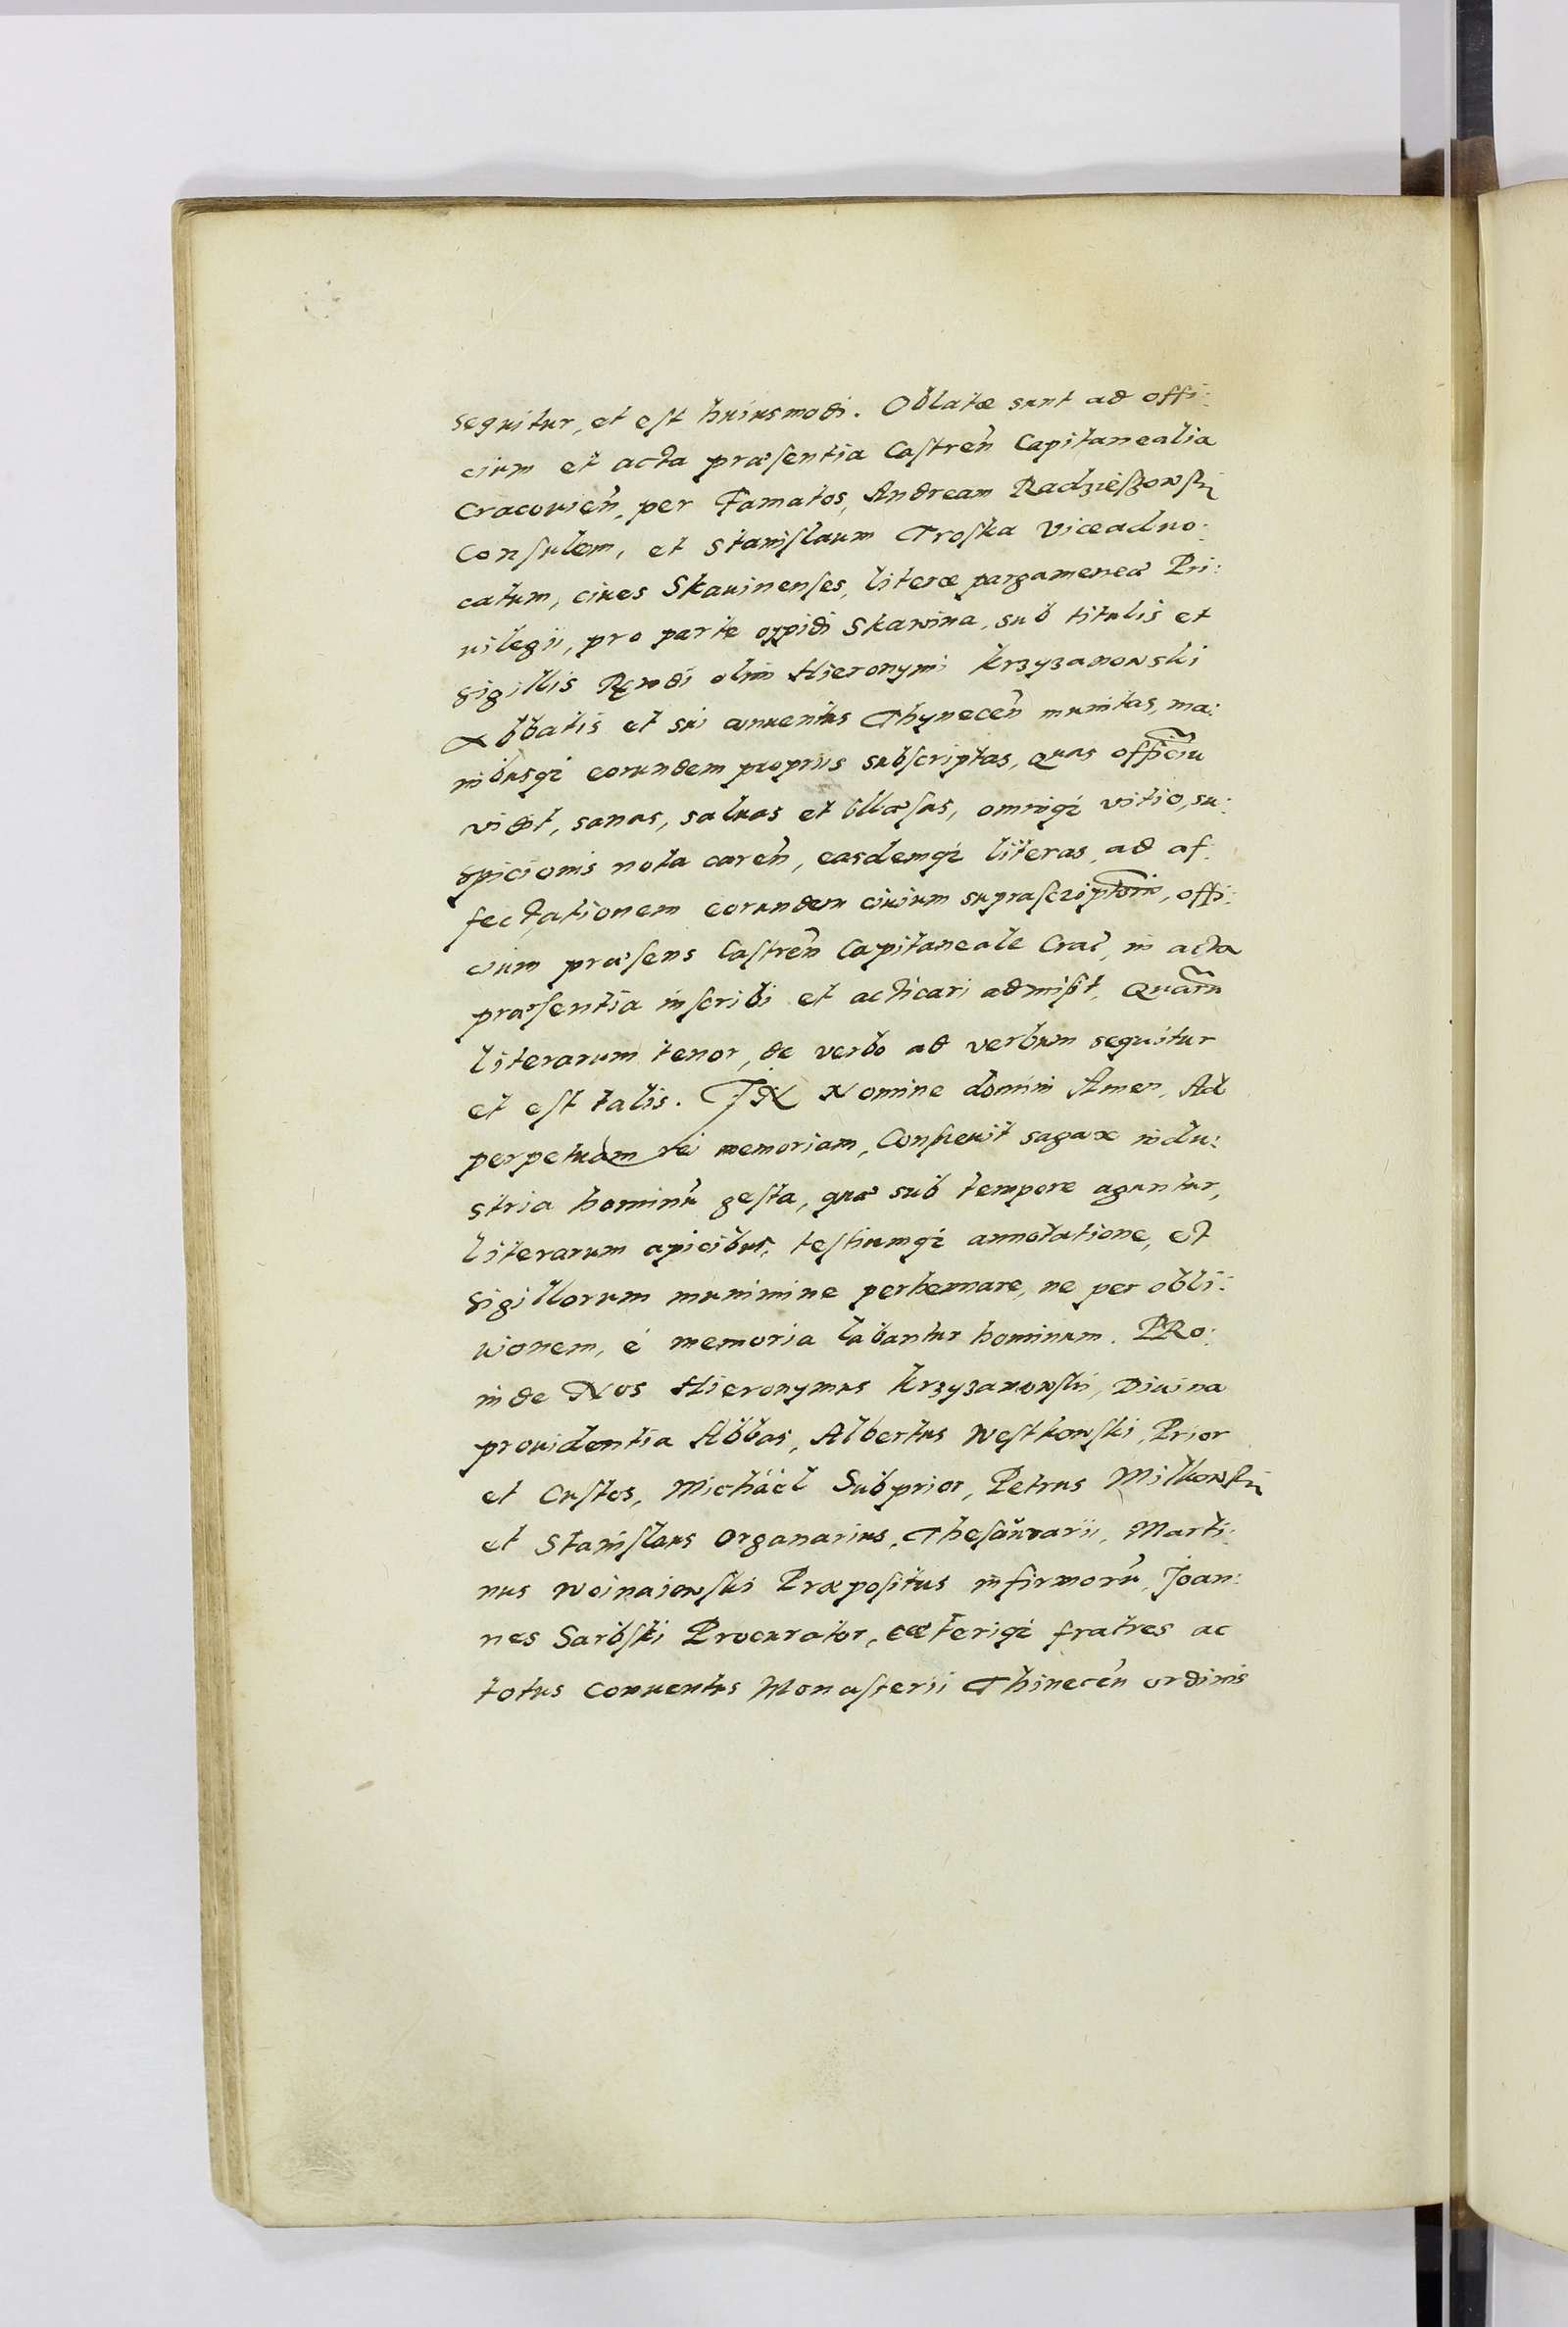 sequitur, et est huiusmodi. Oblatæ sunt ad offi:
cium et acta præsentia Castreñ Capitanealia
Cracouieñ, per Famatos, Andream Radzieszowski
Consulem, et Stanislaum Troska Viceaduo:
catum, ciues Skauinenses, literæ pargameneæ Pri:
uilegii, pro parte oppidi Skawina, sub titulis et
sigillis Rẹndi olim Hieronymi Krzyzanowski
Abbatis et sui conuentus Thyneceñ munitas, ma:
nibusq; eorundem propriis subscriptas, quas officiũ
vidit, sanas, saluas et illæsas, omniq; vitio, su:
spicionis nota careñ, easdemq; literas, ad af:
fectationem eorundem ciuium suprascriptorũ, offi:
cium præsens Castreñ Capitaneale Crac̃, in acta
præsentia inscribi et acticari admisit, Quarũ
literarum tenor, de verbo ad verbum sequitur
et est talis. IN Nomine domini Amen, Ad
perpetuam rei memoriam, Consueuit sagax indu:
stria hominũ gesta, quæ sub tempore aguntur,
literarum apicibus, testiumq; annotatione, et
sigillorum munimine perhennare, ne per obli:
uionem, é memoria labantur hominum. PRo:
inde Nos Hieronymus Krzyzanowski, Diuina
prouidentia Abbas, Albertus Westkowski, Prior
et Custos, Michäel Subprior, Petrus Milkowski
et Stanislaus Organarius, Thesaurarii, Marti:
nus Woinaiowski Præpositus infirmorũ, Joan:
nes Sarbski Procurator, cæteriq; fratres ac
totus conuentus Monasterii Thineceñ ordinis